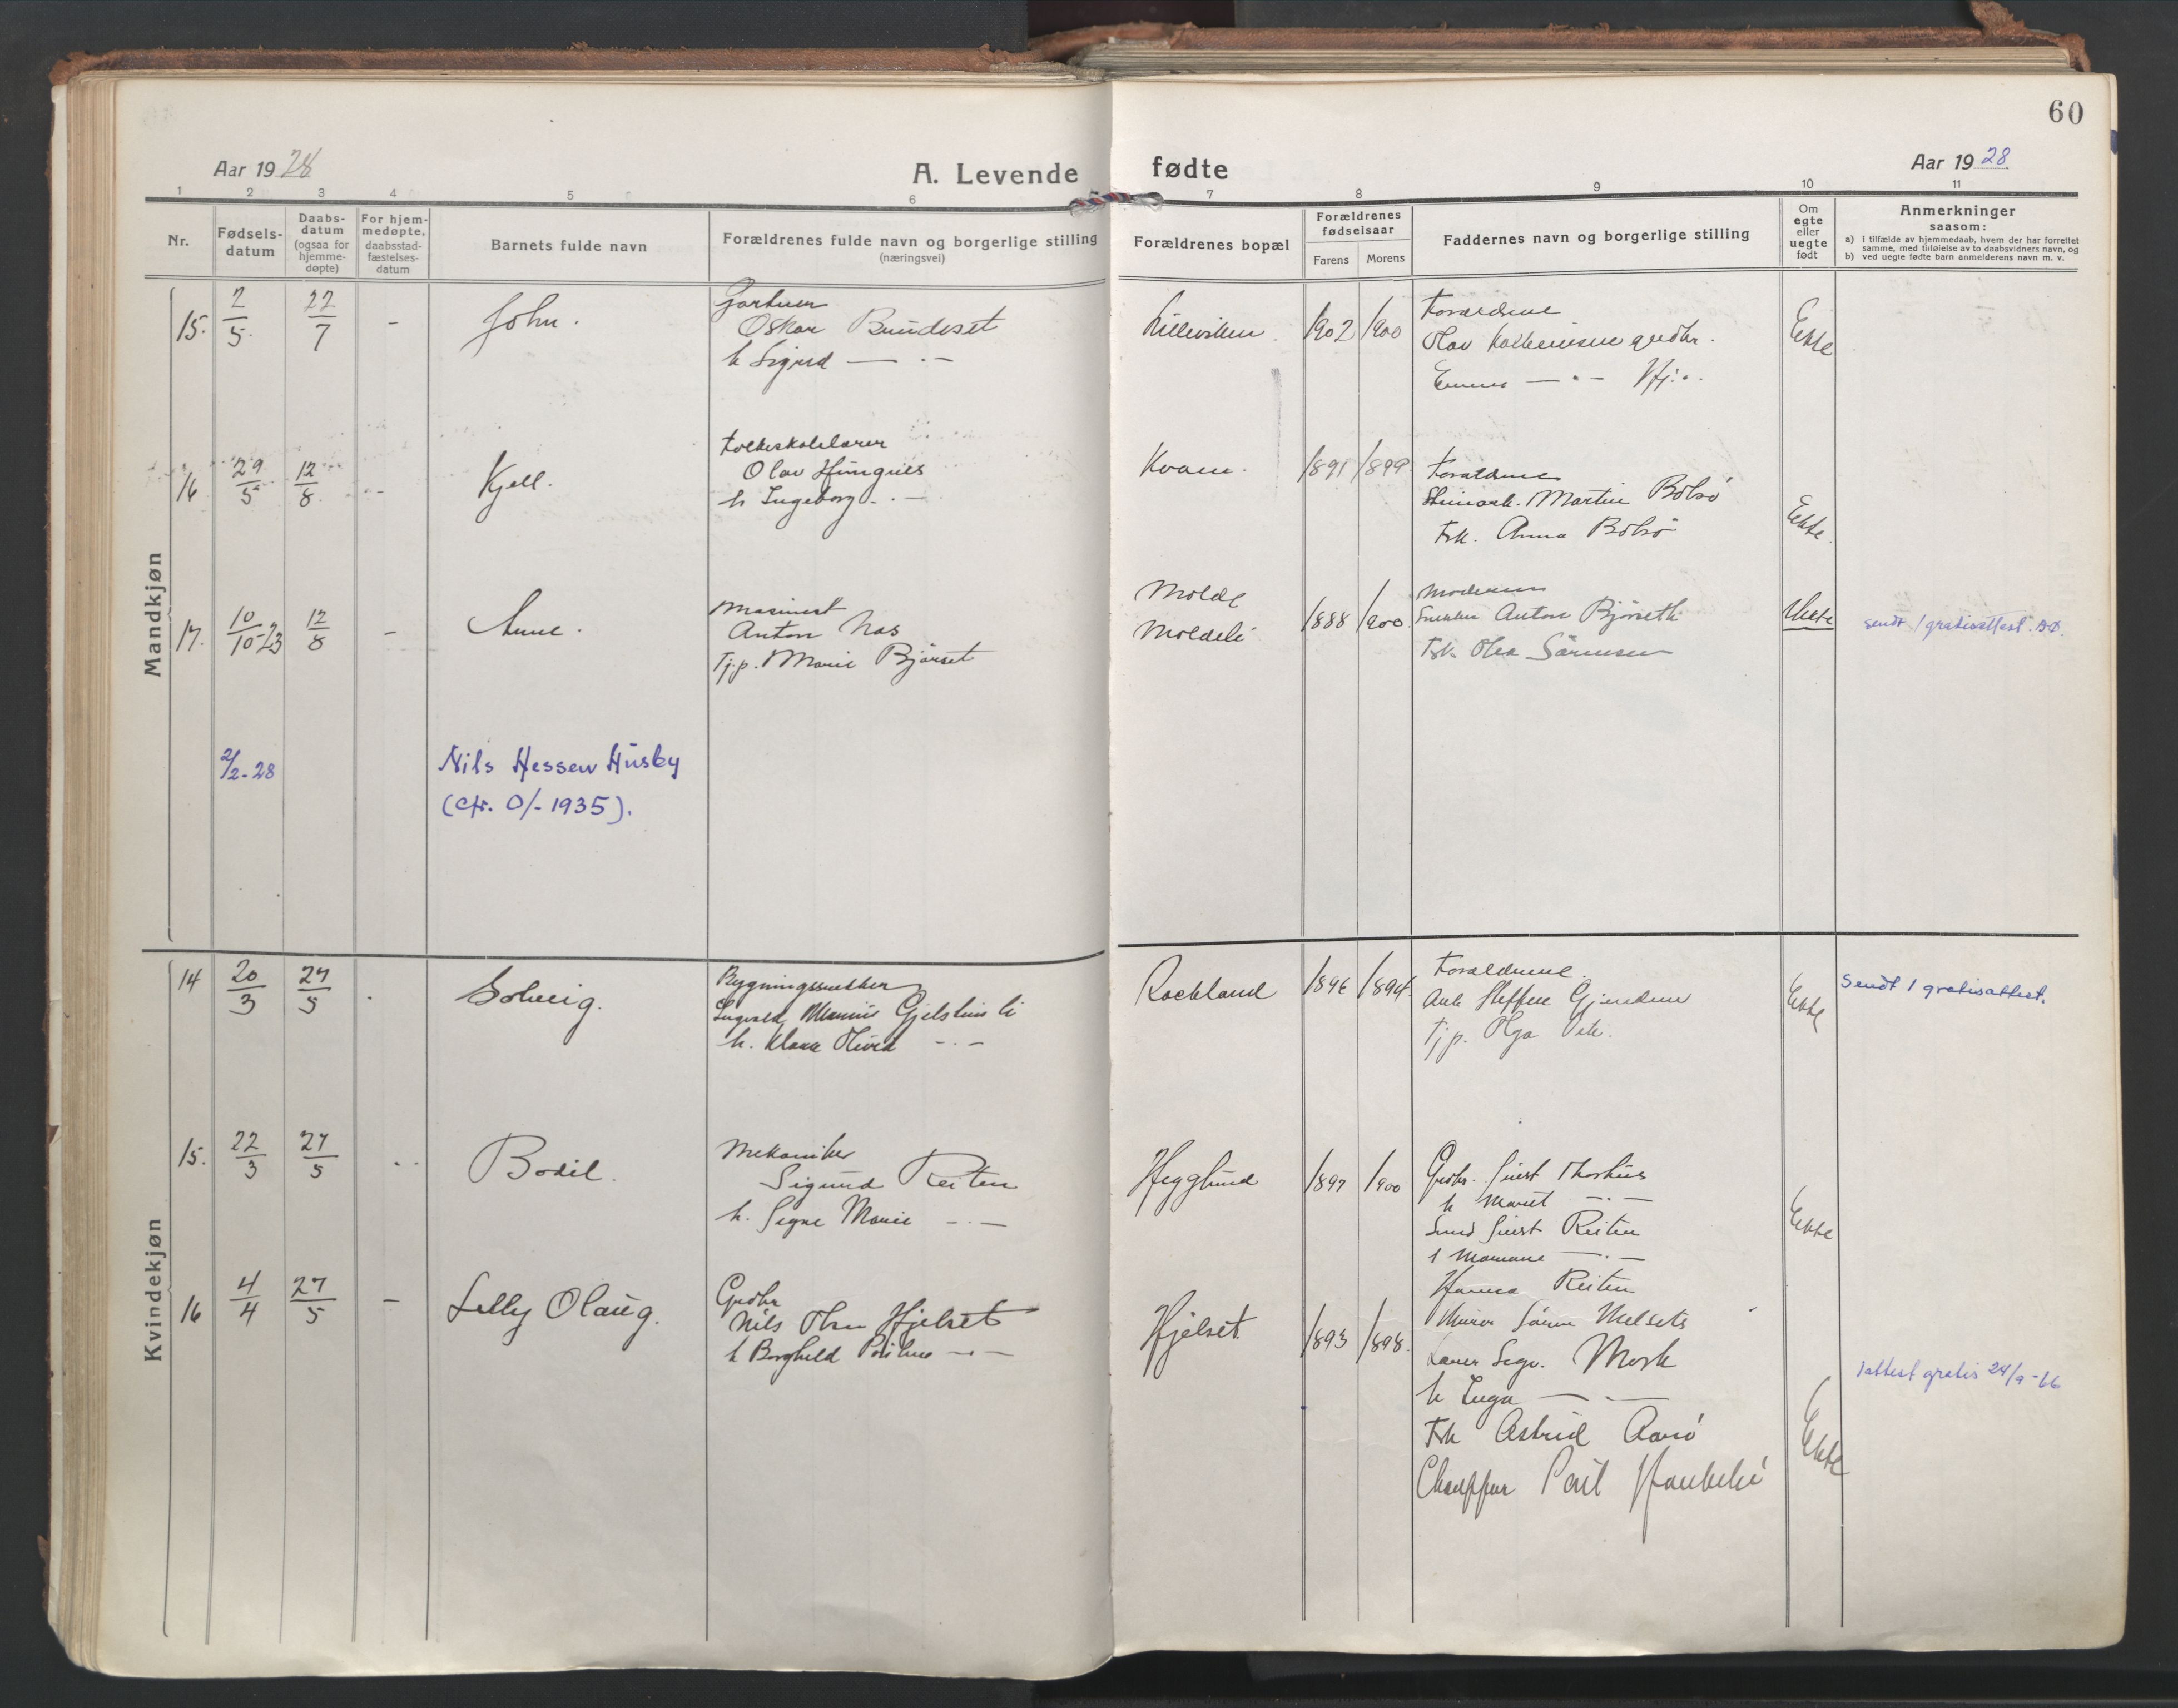 60
Aar 1928
A. Levende
fødte
Aar 1928
1 2 3 4 5 6 7 8 9 10 11
Nr.
Fødsels-
datum
Daabs-
datum
(ogsaa for
hjemme-
døpte)
For hjem-
medøpte,
daabsstad-
fæstelses-
datum
Barnets fulde navn
Forældrenes fulde navn og borgerlige stilling
(næringsvei)
Forældrenes bopæl
Forældrenes
fødselsaar
Farens Morens
Faddernes navn og borgerlige stilling
Om
egte
eller
uegte
født
Anmerkninger
saasom:
a) i tilfælde av hjemmedaab, hvem der har forrettet
samme, med tilføielse av to daabsvidners navn, og
b) ved uegte fødte barn anmelderens navn m. v.
Mandkjøn
15. 2/5. 22/7 - John.
Gartner
Oskar Bundeset
h Sigrid — · —
Lillevikan. 1902 1900
Forældrene
Olav gredbr.
Emma — · —
Ekte
16 29/5 12/8 - - Kjell.
Folkeskolelærer
Olav Hungnes
h Ingeborg - . —
Kvam. 1891 1899
Forældrene
Martin Bolsø
Frk. Anna Bolsø
Ekte.
17. 10/10-23 12/8 - Arne.
Masinist
Anton Næs
Tj.p. Marie Bjørset
Molde
Moldeli
1888 1900.
Moderen
Snekker Anton Bjørseth
Frk. Olea Sørensen
Uekte
sendt 1 gratisattest.
2/2-28
Nils Hessen Husby
(cfr. O/- 1935).
Kvindekjøn
14 20/3 27/5 . Solveig.
Bygningssnekker
Ingvald Gjelstenli
h. Klara — . —
Rockland 1896 1894.
Forældrene.
Steffen Gjendem
Tj.p. Olga
Ekte
Sendt 1 gratisattest.
15. 22/3 27/5 - - Bodil.
Mekaniker
Sigurd Reiten
h. Signe Marie — . —
Hegglund 1897 1900
Grdbr. Sivert Thorhus
h Marit — . —
Sivert Reiten
— . —
Hanna Reiten
Ekte
16 4/4 27/5 - Lilly Olaug.
Grdbr
Nils Olsen Hjelset
h Borghild — . —
Hjelset 1893 1898.
Murer Søren Melseter
Lærer Sigv. Mork
h Inga — . —
Frk Astrid Aarø
Chauffør
Ekte
1 attest gratis 24/9-66